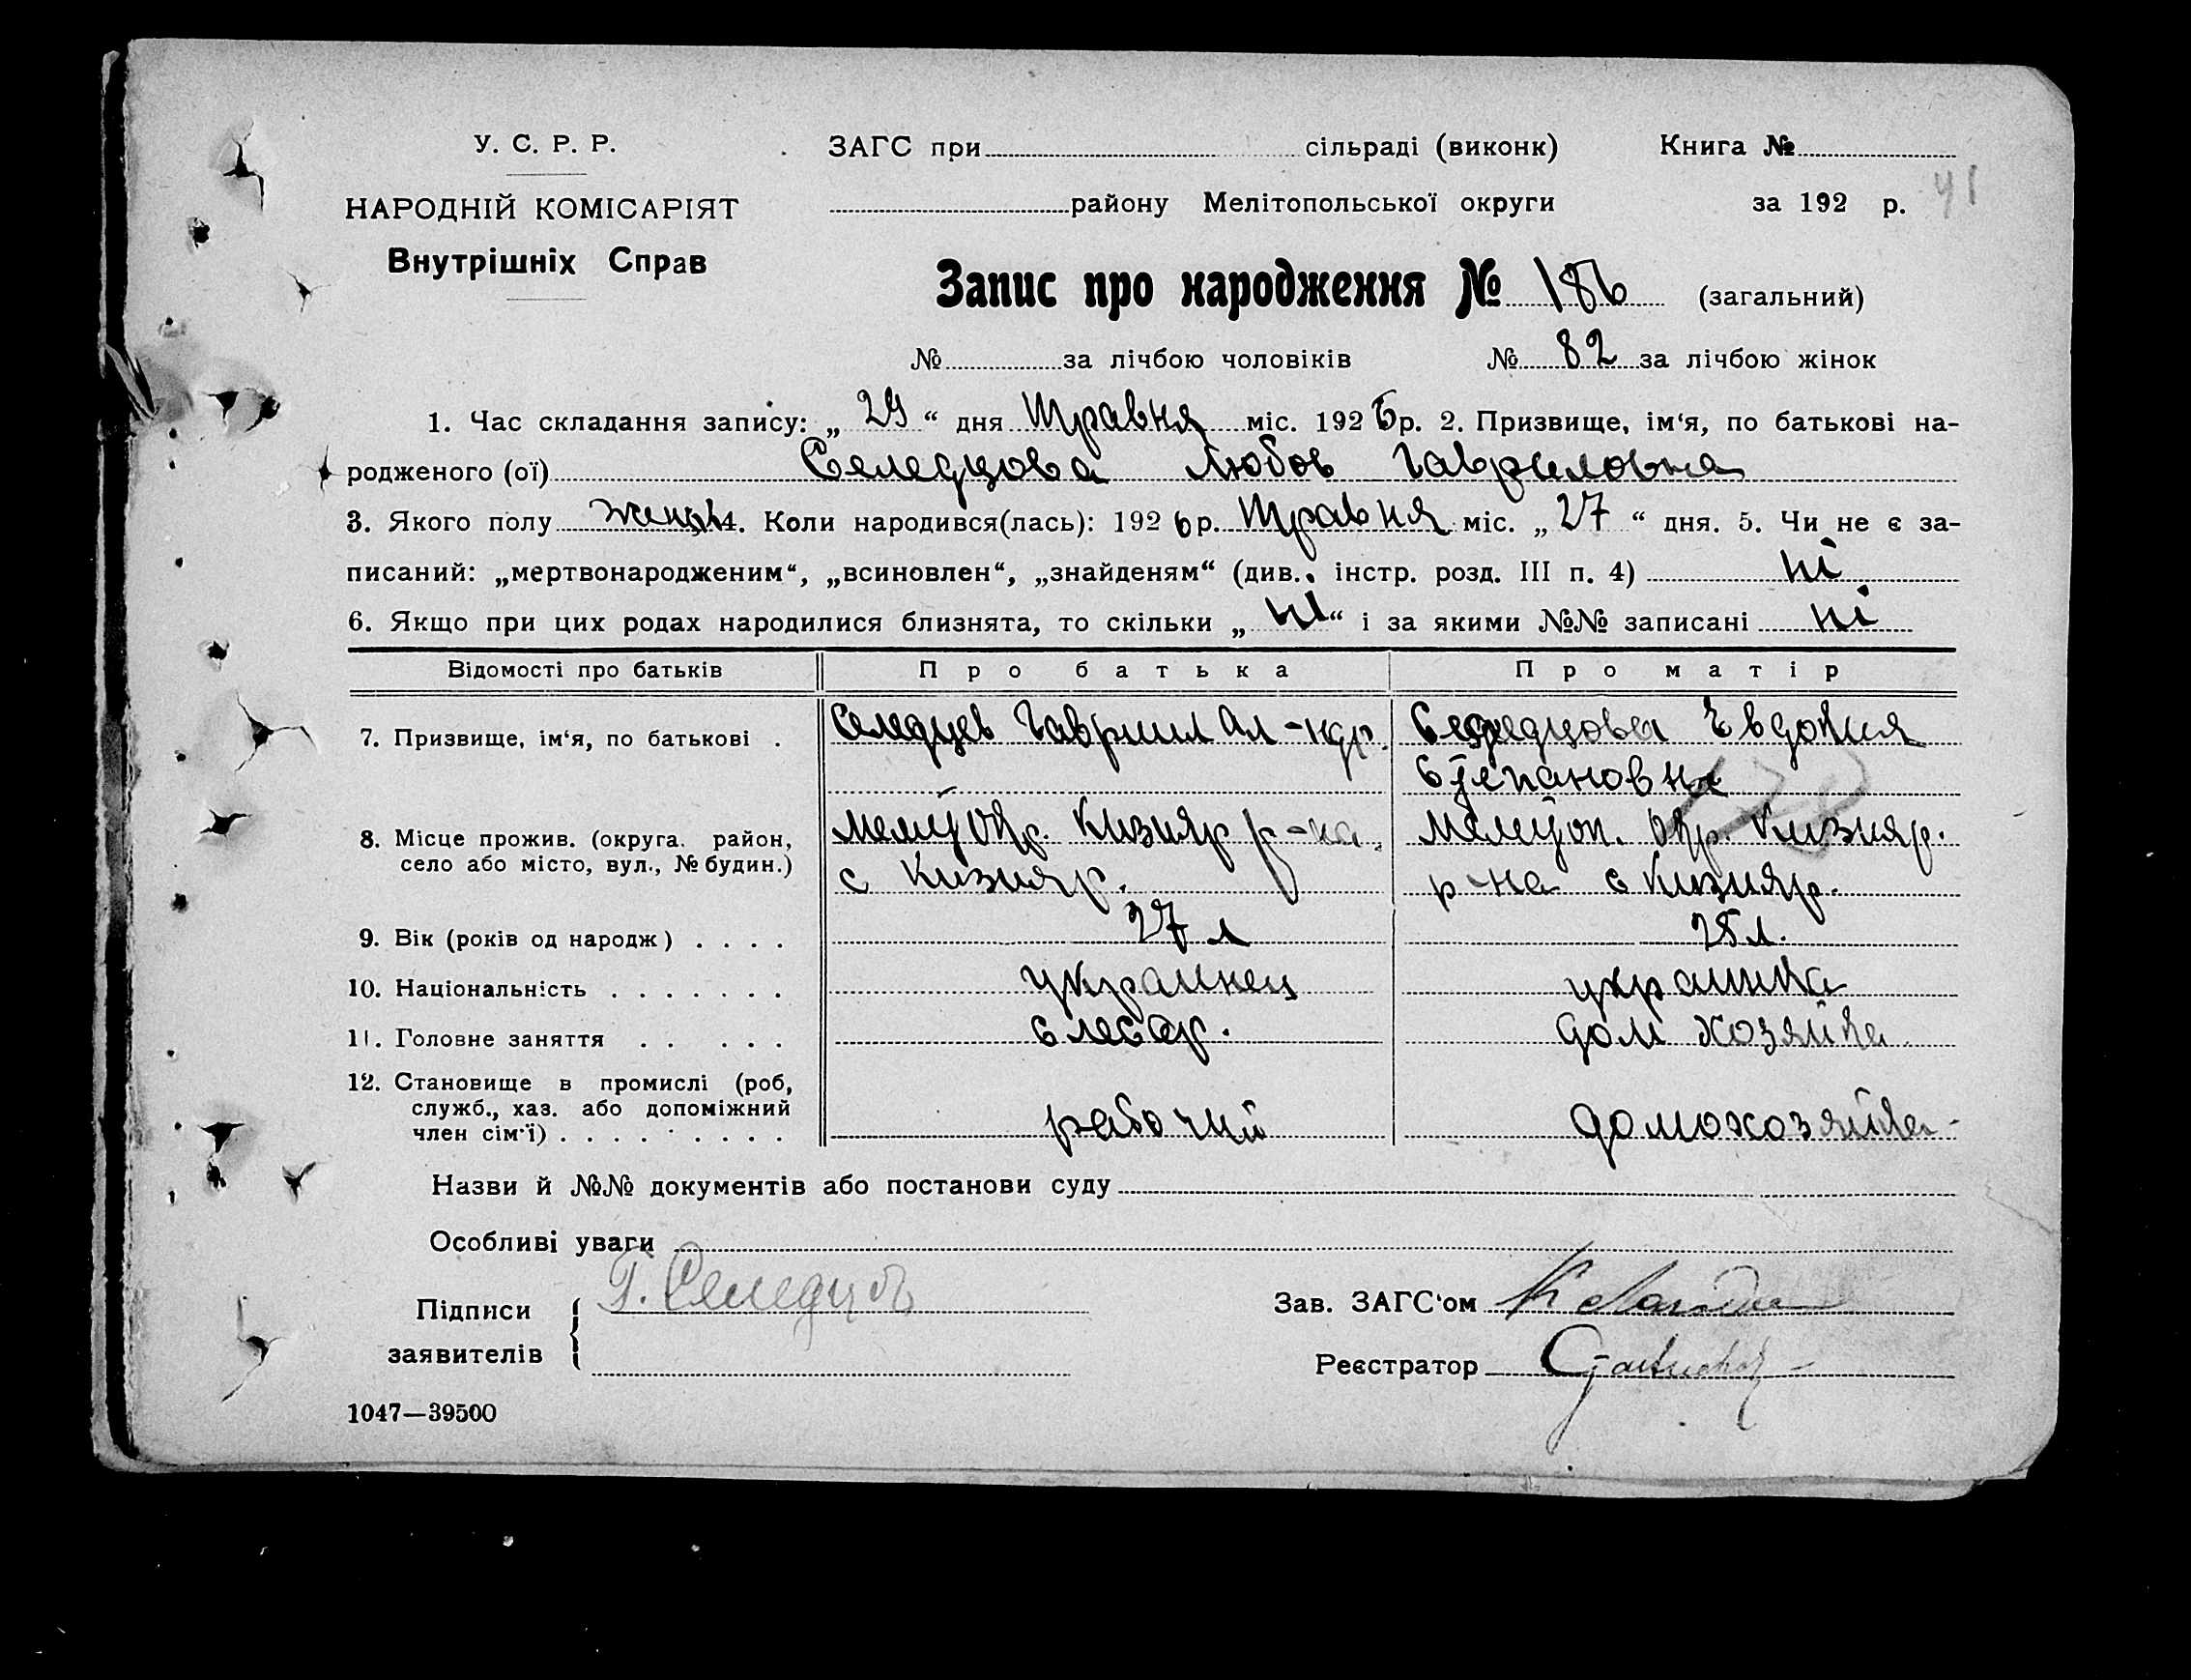 У. С. Р. Р.
ЗАГС при сільраді (виконк) Книга №
НАРОДНІЙ КОМІСАРІЯТ
району Мелітопольської округи за 192 р. 41
Внутрішніх Справ
Запис про народження № 186 (загальний)
№ за лічбою чоловіків № 82 за лічбою жінок
1. Час складання запису: „ 29 “ дня Травня міс. 192 6 р. 2. Призвище, ім‘я, по батькові на-
родженого (ої) Селедцова Любов Гавриловна
3. Якого полу женщ 4. Коли народився(лась): 192 6 р. Травня міс. „ 27 “ дня. 5. Чи не є за-
писаний: „мертвонародженим“, „всиновлен“, „знайденям“ (див. інстр. розд. III п. 4) ні
6. Якщо при цих родах народилися близнята, то скільки „ ні “ і за якими №№ записані ні
Відомості про батьків Про батька Про матір
7. Призвище, ім‘я, по батькові . Селедцев Гавриил Ал-ндр. Селедцова Евдокия
Степановна
8. Місце прожив. (округа. район, село або місто, вул., № будин.) Мелит Окр. Кизияр р-на. Мелитоп. Окр. Кизияр.
с Кизияр. р-на с Кизияр.
9. Вік (років од народж) . . . . 27 л 25 л.
10. Національність . . . . . . . украинец украинка
11. Головне заняття . . . . . слесар. дом хозяйка
12. Становище в промислі (роб,
служб., хаз. або допоміжний
член сім‘ї) . . . . . . . . . рабочий домохозяйка
Назви й №№ документів або постанови суду
Особливі уваги
Підписи Г. Селедцов Зав. ЗАГС‘ом
заявителів Реєстратор
1047—39500